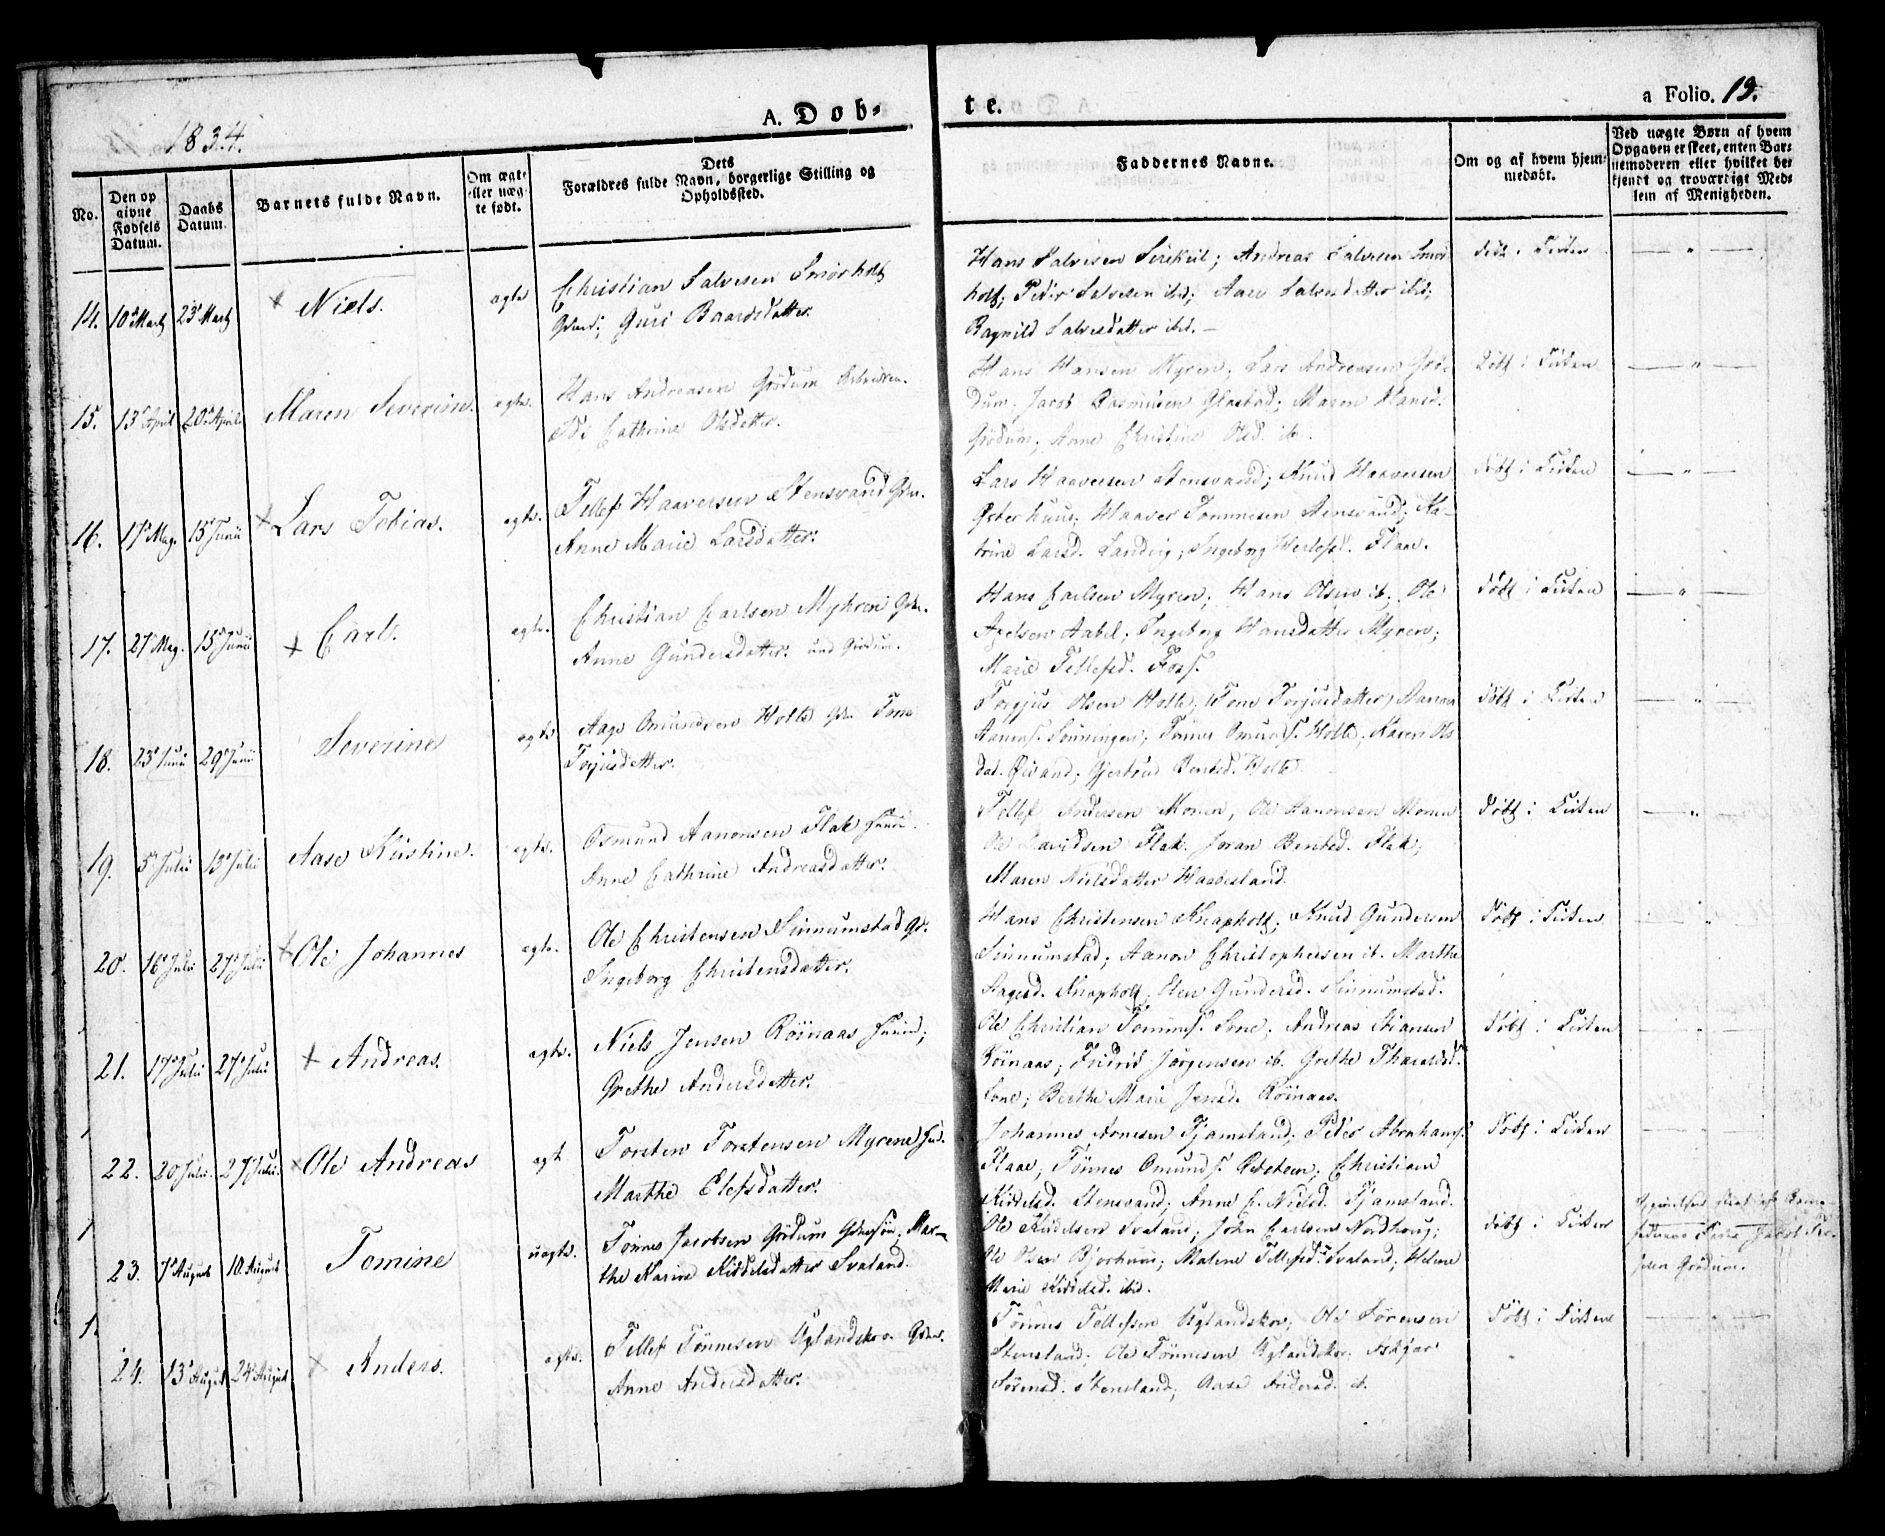 1834.
A. Døb-
te.
a Folio. 19.
No.
Den op
givne
Fødsels
Datum.
Daabs
Datum.
Barnets fulde Navn.
Om ægte
eller uæg-
te født.
Dets
Forældres fulde Navn, borgerlige Stilling og
Opholdssted.
Faddernes Navne.
Om og af hvem hjem-
medøbt.
Ved uægte Børn af hvem
Opgaven er skeet, enten Bar-
nemoderen eller hvilket be-
kjendt og troværdigt Med-
lem af Menigheden.
14. 10de Marts 23de Marts Niels. ægte Christian Salvesen Smörholt
Guri Baardsdatter.
Hans Salvesen Andreas Salvesen Smör
holt; Peder Salvesen ibid; Aase Salvesdatter ibid;
Ragnild Salvesdatter ibid. —
döbt i Kirken
15. 13de April 20de April Maren Severine. ægte. Hans Andreasen Grödum
Cathrine Olsdatter.
Hans Hansen Myren; Lars Andreasen Grö-
dum. Jacob Rasmusen Glastad; Maren Hansd.
Grödum; Anne Christine Olsd. ib.
Döbt i Kirken
16. 17de May. 15de Junii Lars Tobias. ægte. Tellef Haaversen Stensvand Gdm.
Anne Marie Larsdatter.
Lars Haaversen Stensvand; Knud Haaversen
Østerhuus; Haaver Tommesen Stensvand; Ka-
trine Larsd. Landvig; Ingeborg Flaae.
döbt i Kirken
17. 27de May. 15de Junii Carl. ægte. Christian Carlsen Myhren Gdm.
Anne Gundersdatter. und Grödum.
Hans Carlsen Myren; Hans Olsen ib. Ole
Axelsen Aabel; Ingeborg Hansdatter Myren;
Marie Tellefsd. Foss.
Döbt i Kirken
18. 23de Junii 29de Junii Severine ægte Aage Omundsen Holte Gdm. Tone
Torjusdatter.
Torgjus Olsen Holte; Tone Torjusdatter; Aanon
Aanons. Sönningen; Tönnes Omunds. Holte; Karen Ols
dat. Gjertrud Bentsd. Holte.
Döbt i Kirken
19. 5de Julii 13de Julii Aase Kirstine. ægte. Osmund Aanonsen Flak
Anne Cathrine Andreasdatter.
Tellef Andersen Monen, Ole Aanonsen Monen
Ole Davidsen Flak. Joran Bentsd. Flak;
Maren Nielsdatter Haabesland.
Döbt i Kirken
20. 16de Julii 27de Julii Ole Johannes ægte. Ole Christensen Sinnumstad Gd.
Ingeborg Christensdatter.
Hans Christensen Knapholt; Knud Gundersen
Sinnumstad; Aanon Christophersen ib. Marthe
Aagesd. Knapholt; Elen Gundersd. Sinnumstad.
Döbt i Kirken
21. 17de Julii 27de Julii Andreas. ægte. Niels Jensen Röinaas
Grethe Andersdatter.
Ole Christian Tommes. Lone. Andreas Hansen
Röinaas; Fridrik Jørgensen ib. Grethe Tharaldsd.
Lone; Berthe Marie Jensd. Röinaas.
Döbt i Kirken
22. 20de Julii. 27de Julii. Ole Andreas ægt. Torsten Torstensen Myrene
Marthe Elefsdatter.
Johannes Arnesen Tjamsland; Peder Abrahams.
Flaae; Tönnes Omunds. Christian
Kiddelsd. Stensvand; Anne C. Nielsd. Tjamsland.
Döbt i Kirken
23. 7de August 10. August Tomine uægte. Tönnes Jacobsen Grödum Gdmssön; Mar-
the Karine Kiddelsdatter Svaland.
Ole Kiddelsen Svaland; John Carlsen Nordhoug;
Ole Olsen Bjorhuus; Malene Tellefsd. Svaland; Helene
Marie Kiddelsd. ibid.
döbt i Kirken
Jacob
Grödum.
24. 13de August 24de August Anders. ægte. Tellef Tönnesen Uglandskro. Gdm.
Anne Andersdatter.
Tönnes Tellefsen Uglandskro; Ole Sörensen
Stensland; Ole Tönnesen Uglandskro. Askjær
Sörensd. Stensland; Aase Andersd. ib.
Döbt i Kirken